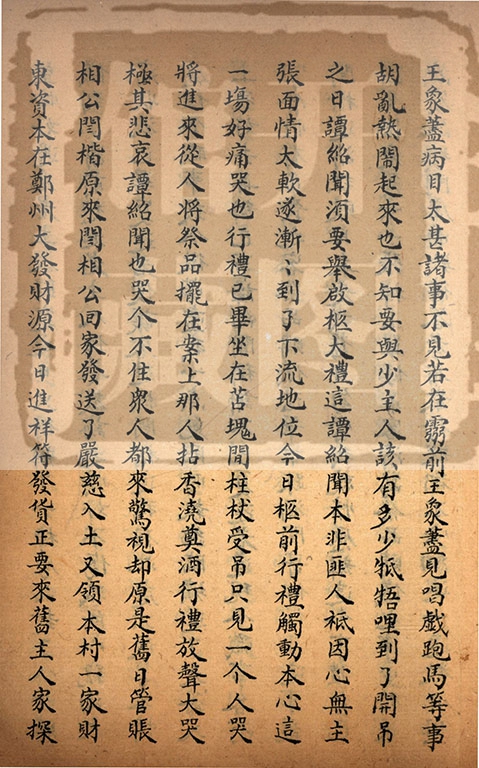 王象藎病目太甚諸事不見若在霱前王象藎見唱戲跑馬等事
胡亂熱鬧起來也不知要與少主人該有多少牴牾哩到了開吊
之日譚紹聞須要舉啟柩大禮這譚紹聞本非匪人袛因心無主
張面情太軟遂漸〻到了下流地位今日柩前行禮觸動本心這
一塲好痛哭也行禮已畢坐在苫塊間柱杖受吊只見一个人哭
將進來從人將祭品擺在案上那人拈香澆奠洒行禮放聲大哭
極其悲哀譚紹聞也哭个不住衆人都來驚視却原是舊日管賬
相公閆楷原來閆相公回家發送了嚴慈入土又領本村一家財
東資本在鄭州大發財源今日進祥符發貨正要來舊主人家探